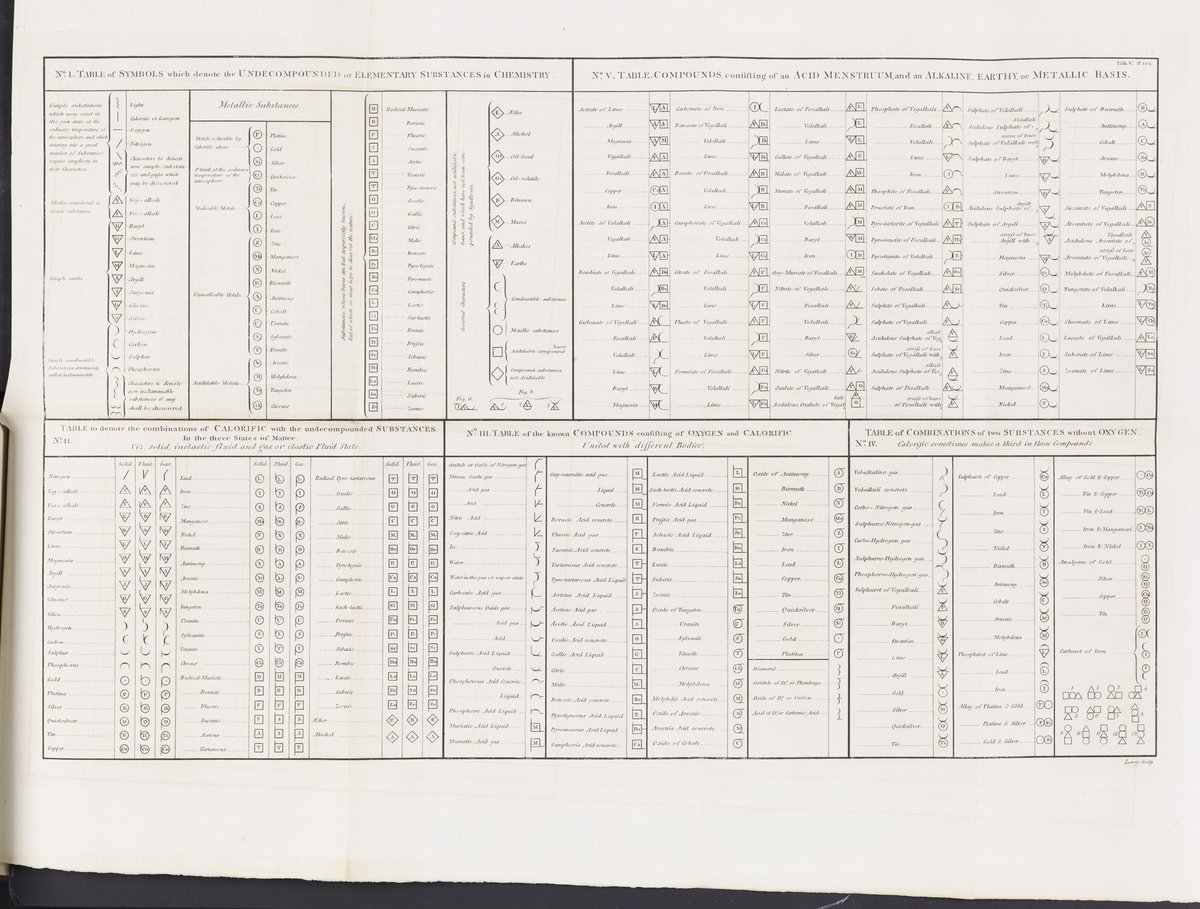 Tab. V. P. 104.
No. I. TABLE of SYMBOLS which denote the UNDECOMPOUNDED or ELEMENTARY SUBSTANCES in CHEMISTRY.
Simple substances
which may exist in
the gas state at the
ordinary temperature of
the atmosphere and which
entering into a great
number of Substances
require simplicity in
their characters
Light
Calorific or Gazogen
Oxygen
Nitrogen
Characters to denote
new simple substan-
ces and gases which
may be discovered
Alkalies considered as
simple substances
Veg-alkali
Fos-alkali
Simple earths
Baryt
Strontian
Lime
Magnesia
Argill
Jargonia
Glucine
Silica
Simple combustible
Substances commonly
called inflammable
Hydrogen
Carbon
Sulphur
Phosphorus
Characters to denote
new inflammable
substances if any
shall be discovered
Metallic Substances.
Metals reducible by
Calorific alone
Platina
Gold
Silver
Fluid at the ordinary
temperature of the
atmosphere
Quicksilver
Malleable Metals
Tin
Copper
Lead
Iron
Zinc
Unmalleable Metals
Manganese
Nickel
Bismuth
Antimony
Cobalt
Uranite
Sylvanite
Titanite
Acidifiable Metals
Arsenic
Molybdena
Tungsten
Chrome
Substances, whose bases are but imperfectly known,
but of which we may hope to discover the nature.
Radical Muriatic
Boracic
Fluoric
Succinic
Acetic
Tartaric
Pyro-tartaric
Oxalic
Gallic
Citric
Malic
Benzoic
Pyro-lignic
Pyromucic
Camphoric
Lactic
Sac-lactic
Formic
Prussic
Sebacic
Bombic
Laccic
Suberic
Zoonic
General Characters.
Æther
Alkohol
Oil-fixed
Oil-volatile
Bitumen
Mucus
Alkalies
Earths
Combustible substance
Metallic substances
bases
Acidifiable compound
Compound substances
not Acidifiable
Fig. a.
Fig. b.
No. V. TABLE. COMPOUNDS, consisting of an ACID MENSTRUUM, and an ALKALINE, EARTHY, or METALLIC BASIS.
Acetate of Lime
Argill
Magnesia
Vegalkali
Fosalkali
Copper
Iron
Acetite of Volalkali
Vegalkali
Lime
Bombiate of Vegalkali
Volalkali
Lime
Carbonate of Vegalkali
Fosalkali
Volalkali
Lime
Baryt
Magnesia
Carbonate of Iron
Benzoate of Vegalkali
Volalkali
Lime
Borate of Fosalkali
Volalkali
Lime
Camphorate of Vegalkali
Volalkali
Lime
Citrate of Fosalkali
Volalkali
Lime
Fluate of Vegalkali
Volalkali
Lime
Formiate of Vegalkali
Volalkali
Lime
Lactate of Fosalkali
Volalkali
Lime
Gallate of Vegalkali
Malate of Vegalkali
Muriate of Vegalkali
Fosalkali
Volalkali
Baryt
Iron
Oxy-Muriate of Fosalkali
Nitrate of Vegalkali
Fosalkali
Volalkali
Baryt
Silver
Nitrite of Vegalkali
Oxalate of Vegalkali
Acidulous Oxalate of Vegal
kali
Phosphate of Vegalkali
Fosalkali
Volalkali
Lime
Iron
Phosphite of Fosalkali
Prusiate of Iron
Pyrotartarite of Vegalkali
Pyromucite of Fosalkali
Pyrolignate of Volalkali
Saccholate of Vegalkali
Sebate of Fosalkali
Sulphite of Vegalkali
Sulphate of Vegalkali
alkali
Acidulous Sulphate of Veg
excess of base
Sulphate of Vegalkali with
alkali
Acidulous Sulphate of Fos
Sulphate of Fosalkali
excess of base
of Fosalkali with
Sulphate of Volalkali
Volalkali
Acidulous Sulphate of
excess of base
Sulphate of Volalkali with
Sulphate of Baryt
Lime
Strontian
Argill
Acidulous Sulphate of
Sulphate of Argill
excess of base
Argill with
Magnesia
Silver
Quicksilver
Tin
Copper
Lead
Iron
Zinc
Manganese
Nickel
Sulphate of Bismuth
Antimony
Cobalt
Arsenic
Molybdena
Tungsten
Succinate of Vegalkali
Arseniate of Vegalkali
Vegalkali
Acidulous Arseniate of
excess of base
Arseniate of Vegalkali
Molybdate of Fosalkali
Tungstate of Volalkali
Lime
Chromate of Lime
Laccate of Vegalkali
Suberate of Lime
Zoonate of Lime
TABLE to denote the combinations of CALORIFIC with the undecompounded SUBSTANCES.
No. II.
In the three States of Matter.
Viz. solid, inelastic fluid, and gas or elastic Fluid State.
Solid. Fluid. Gas.
Nitrogen
Veg-alkali
Fos-alkali
Baryt
Strontian
Lime
Magnesia
Argill
Jargonia
Glucine
Silica
Hydrogen
Carbon
Sulphur
Phosphorus
Gold
Platina
Silver
Quicksilver
Tin
Copper
Solid. Fluid. Gas.
Lead
Iron
Zinc
Manganese
Nickel
Bismuth
Antimony
Arsenic
Molybdena
Tungsten
Uranite
Sylvanite
Titanite
Chrome
Radical Muriatic
Boracic
Fluoric
Succinic
Acetous
Tartareous
Solid. Fluid. Gas.
Radical Pyro-tartareous
Oxalic
Gallic
Citric
Malic
Benzoic
Pyro-lignic
Camphoric
Lactic
Sach-lactic
Formic
Prussic
Sebacic
Bombic
Laccic
Suberic
Zoonic
Æther
Alcohol
No. III. TABLE of the known COMPOUNDS consisting of OXYGEN and CALORIFIC
United with different Bodies.
Oxidule or Oxide of Nitrogen gas
Nitrous Oxide gas
Acid gas
Acid
Nitric Acid
Oxy-nitric Acid
Ice
Water
Water in the gas or vapor state
Carbonic Acid gas
Sulphureous Oxide gas
Acid gas
Acid
Sulphuric Acid Liquid
Concrete
Phosphorous Acid Concrete
Liquid
Phosphoric Acid Liquid
Muriatic Acid Liquid
Muriatic Acid gas
Oxy-muriatic acid gas
Liquid
Concrete
Boracic Acid concrete
Fluoric Acid gas
Succinic Acid concrete
Tartareous Acid concrete
Pyro-tartareous Acid Liquid
Acetous Acid Liquid
Acetous Acid gas
Acetic Acid Liquid
Oxalic Acid concrete
Gallic Acid Liquid
Citric
Malic
Benzoic Acid concrete
Pyroligneous Acid Liquid
Pyromucous Acid Liquid
Camphoric Acid concrete
Lactic Acid Liquid
Sach-lactic Acid concrete
Formic Acid Liquid
Prussic Acid gas
Sebacic Acid Liquid
Bombic
Laccic
Suberic
Zoonic
Oxide of Tungsten
Uranite
Sylvanite
Titanite
Chrome
Molybdena
Molybdic Acid concrete
Oxide of Arsenic
Arsenic Acid concrete
Oxide of Cobalt
Oxide of Antimony
Bismuth
Nickel
Manganese
Zinc
Iron
Lead
Copper
Tin
Quicksilver
Silver
Gold
Platina
Diamond
TABLE of COMBINATIONS of two SUBSTANCES without OXYGEN.
No. IV. Calorific sometimes makes a third in these Compounds.
Vol-alkaline gas
Vol-alkali concrete
Carbo-Nitrogen gas
Sulphure-Nitrogen gas
Carbo-Hydrogen gas
Sulphure-Hydrogen gas
Phosphore-Hydrogen gas
Sulphuret of Vegalkali
Fosalkali
Baryt
Strontian
Lime
Argill
Gold
Silver
Quicksilver
Tin
Sulphuret of Copper
Lead
Iron
Zinc
Nickel
Bismuth
Antimony
Cobalt
Arsenic
Molybdena
Phosphuret of Lime
Lead
Iron
Alloy of Platina & Gold
Platina & Silver
Gold & Silver
Alloy of Gold & Copper
Tin & Copper
Tin & Lead
Iron & Manganese
Iron & Nickel
Amalgam of Gold
Silver
Copper
Tin
Carburet of Iron
Lowry Sculp